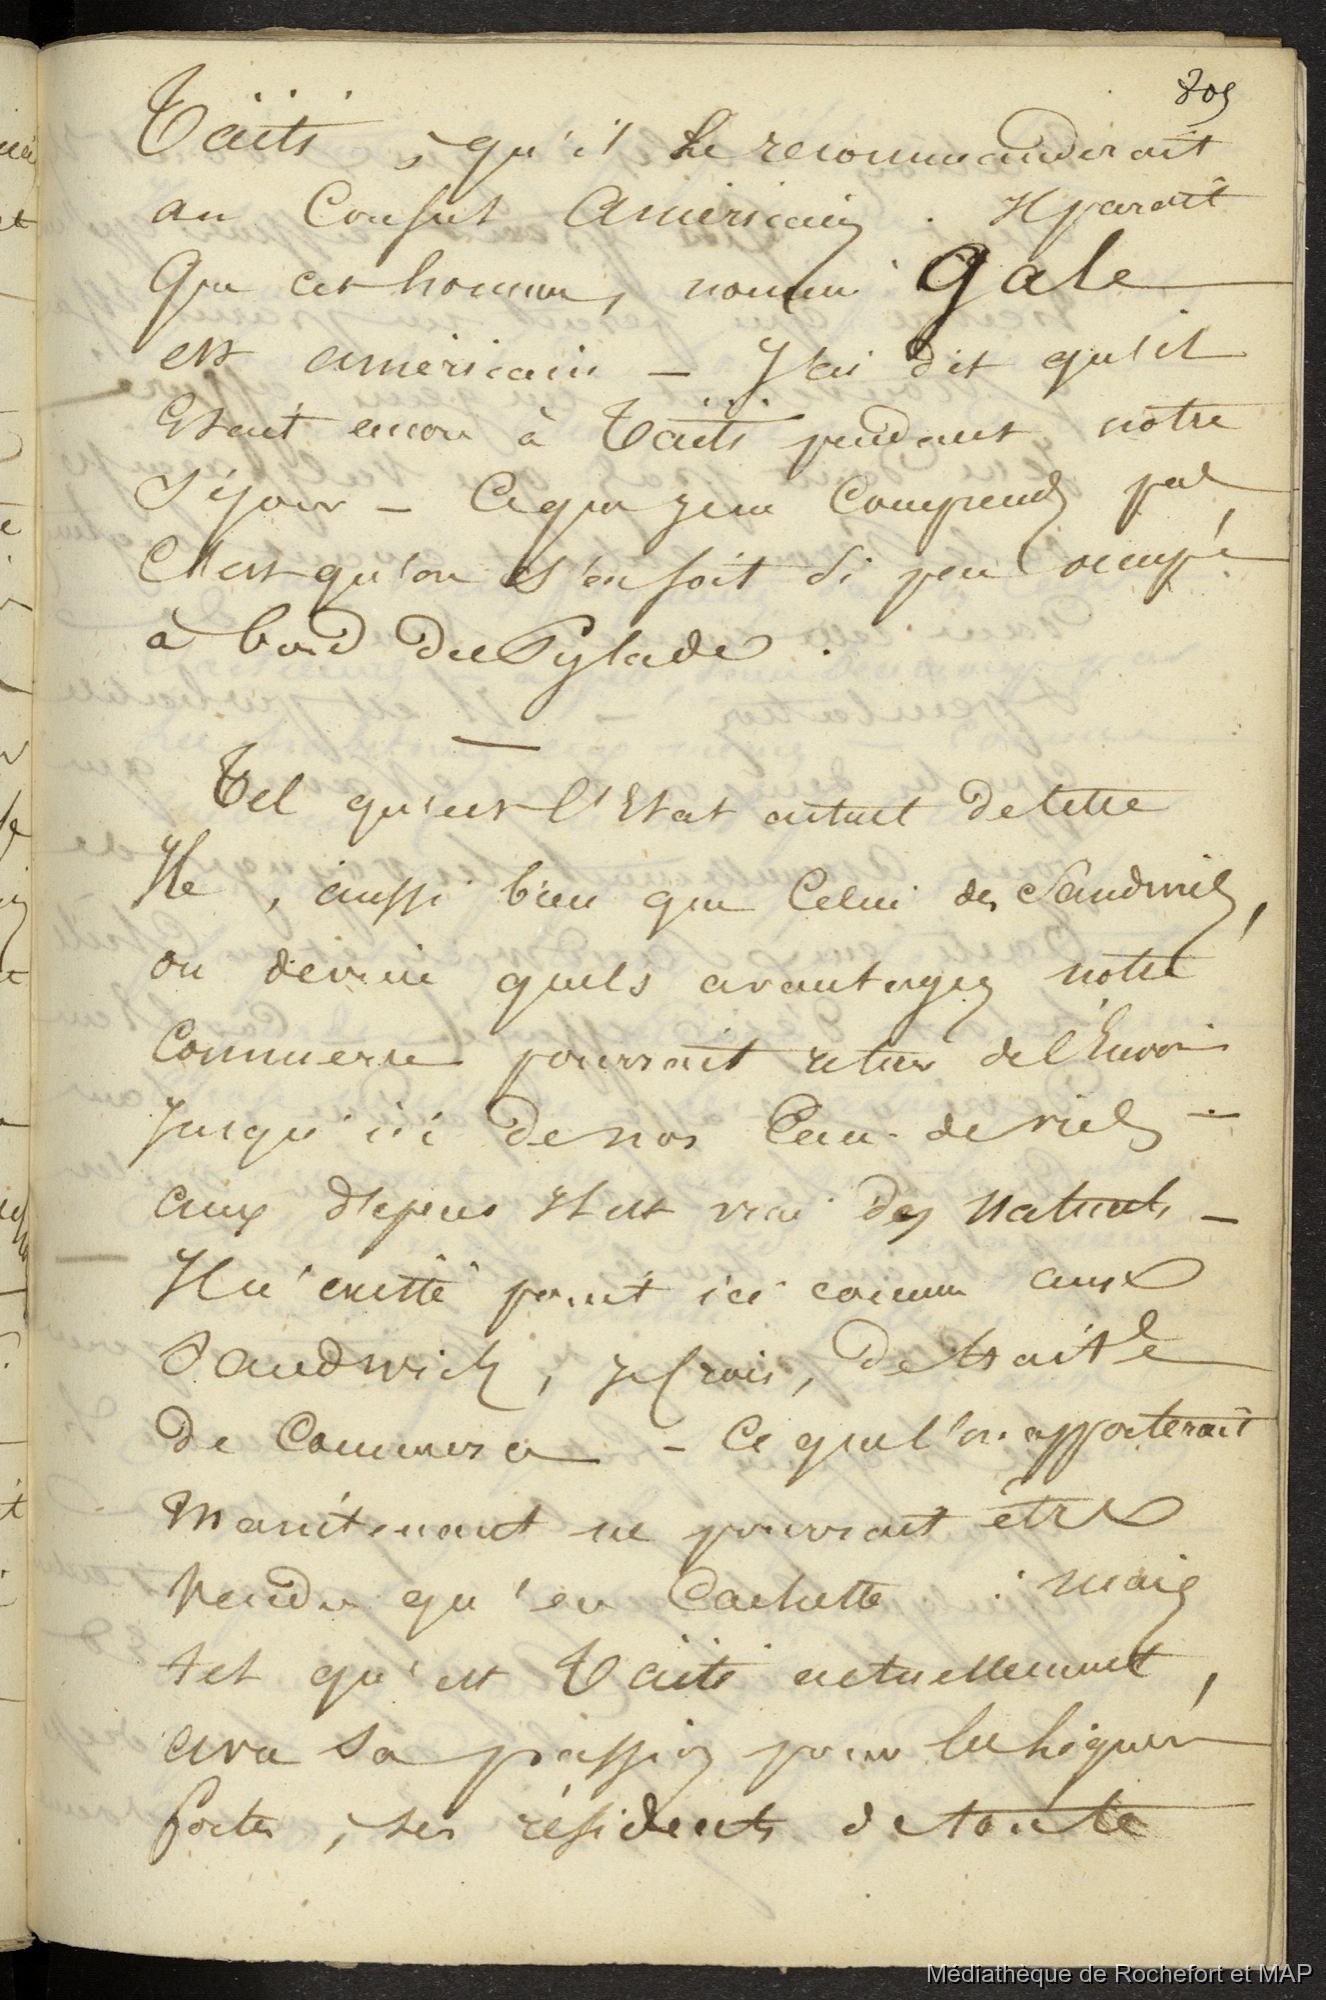 805
Taïti, qu'il le recommanderait
au Consul Américain. Il parait
que cet homme, nommé Gale
est américain — J'ai dit qu'il
Etait encore à Taïti pendant notre
séjour — Ce que je ne comprends pas
C'est qu'on s'en soit si peu occupé
à bord du Pylade.
—
Tel qu'est l'Etat actuel de cette
Ile, aussi bien que celui des Sandwich,
on devine quels avantages notre
Commerce pourrait retirer de l'Envoi
jusqu'ici de nos Eaux-de-vie —
aux dépens il est vrai des naturels —
Il n'existe point ici comme aux
Sandwich, je crois, de traité
de Commerce — Ce que l'on apporterait
maintenant ne pourrait être
vendu qu'en Cachette : mais
tel qu'est Taïti actuellement,
avec sa passion pour les liqueurs
fortes, ses résidents de toute
Médiathèque de Rochefort et MAP